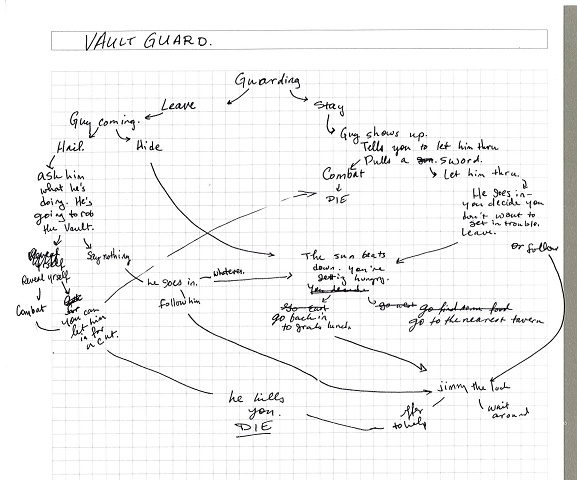 VAULT GUARD.
Guarding
Leave
Stay
Guy coming.
Guy shows up.
Tells you to let him thru
Pulls a gun. sword.
Hail
Hide
Combat
DIE
Let him thru.
ask him
what he's
doing. He's
going to rob
the Vault.
He goes in-
you decide you
don't want to
get in trouble.
Leave.
or follow
Reveal
yrself
Reveal yrself
Say nothing
he goes in.
whatever.
Follow him
The sun beats
down. you're
getting hungry.
You decide
Combat
you can
let him
in for
a cut.
go East
go back in
to grab lunch
go west
go find some food
go to the nearest tavern
jimmy the lock
offer
to help
wait
around
he kills
you.
DIE